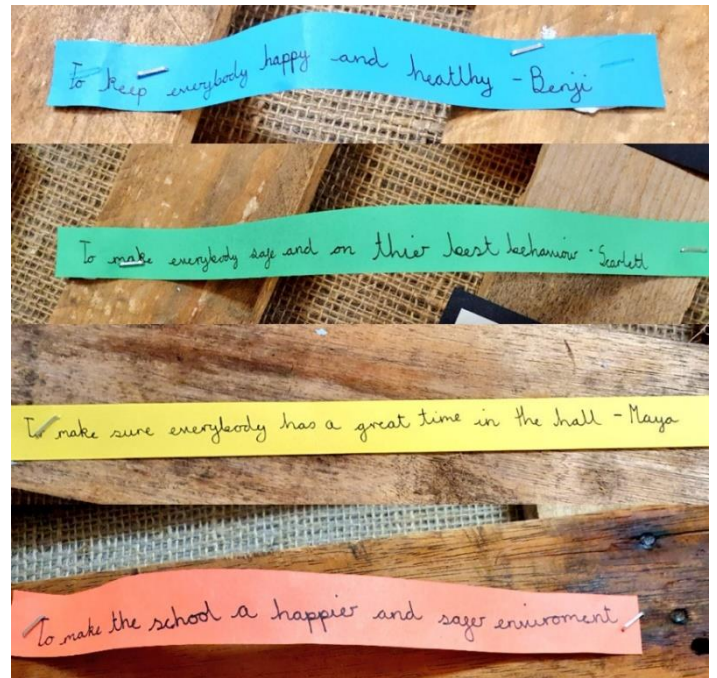 To keep everybody happy and heatlhy - Benji
To make everybody safe and on thier best behaviour - Scarlett
To make sure everybody has a great time in the hall - Maya
To make the school a happier and safer enviroment